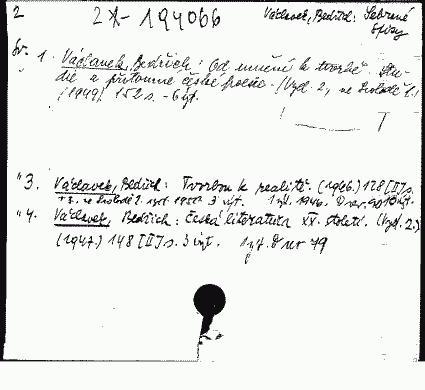 2 2X-194066 Václavek, Bedřich: Sebrané
Spisy
Sv. 1. Václavek, Bedřich: Od umění k tvorbě. Stu-
die z přítomné české poesie. (Vyd. 2, ve Svobodě 1.)
(1949) 152 s. - 6 výt.
"3. Václavek, Bedřich: Tvorbou k realitě. (1946.) 128 [II] s.
"4. Václavek, Bedřich: Česká literatura XX. století. (Vyd. 2.)
(1947.) 148 [II] s. 3 výt. 1 výt. 79